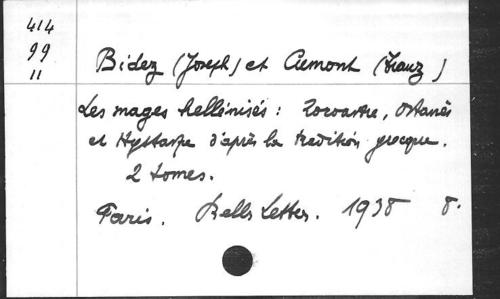 414
99
11
Bidez (Joseph) et Cumont (Franz)
Les mages hellénisés : Zoroastre, Ostanès
et Hystaspe d'après la tradition grecque.
2 tomes.
Paris. Belles Lettres. 1938 8.